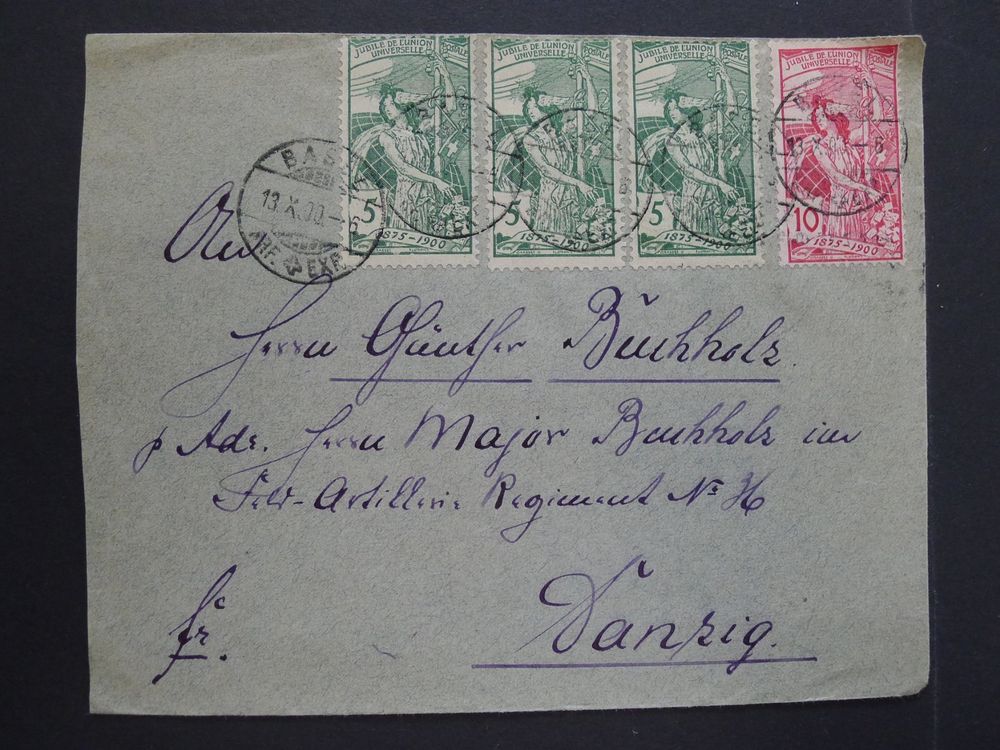 JUBILÉ DE L'UNION POSTALE UNIVERSELLE
5
1875-1900
JUBILÉ DE L'UNION POSTALE UNIVERSELLE
5
1875-1900
JUBILÉ DE L'UNION POSTALE UNIVERSELLE
5
1875-1900
JUBILÉ DE L'UNION POSTALE UNIVERSELLE
10
1875-1900
BAS
13.X.00.-6
BF. EXP.
13.X.00.-6
An
Herrn Günther Buchholz.
p Adr. Herrn Major Buchholz im
Feld-Artillerie Regiment No 36
Danzig.
fr.